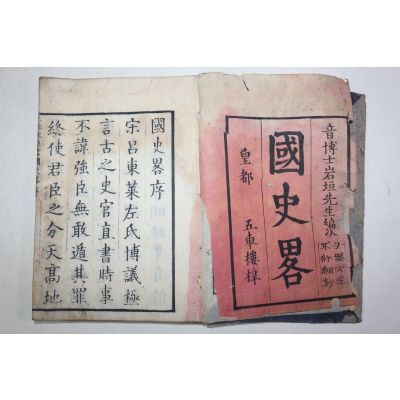 音博士岩垣先生編次
不許翻刻
國史畧
皇都 五車樓梓
國史畧序
宋呂東萊左氏博議極
言古之史官直書時事
不諱強臣無敢遁其罪
終使君臣之分天高地